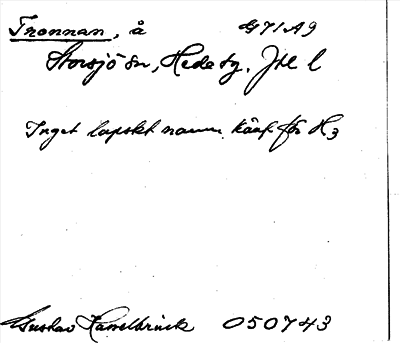 Tronnan, å G71A9
Storsjö sn, Hede tg, Jtl l
Inget lapskt namn känt för H3
Gustav Hasselbrink 050743